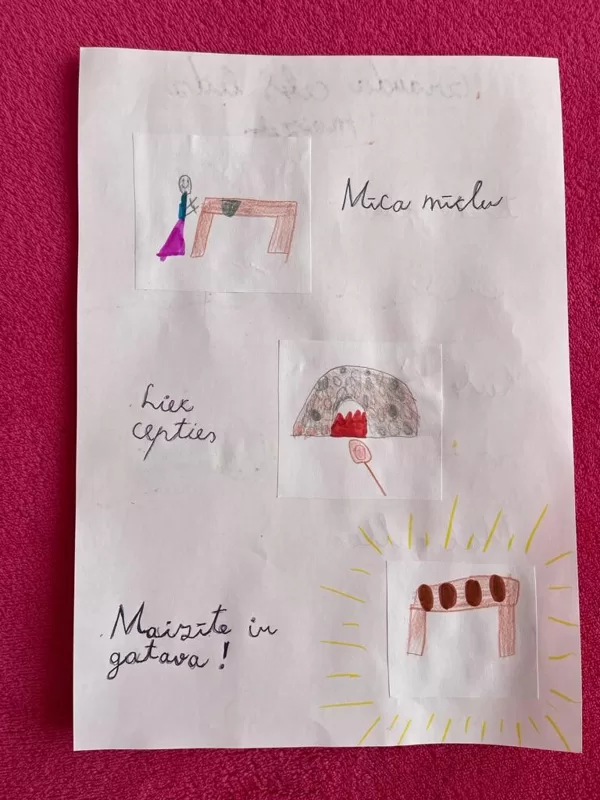 Mīca mīklu
Liek
cepties
Maizīte ir
gatava!